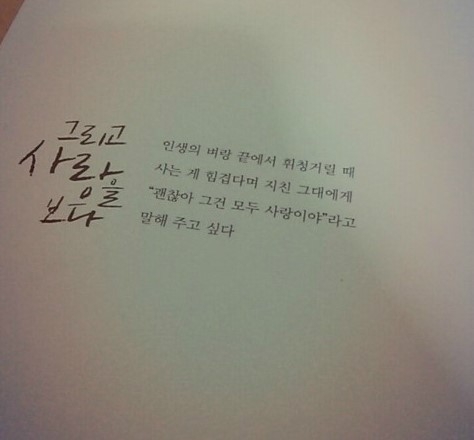 그리고
사랑을
보다
인생의 벼랑 끝에서 휘청거릴 때
사는 게 힘겹다며 지친 그대에게
“괜찮아 그건 모두 사랑이야”라고
말해 주고 싶다